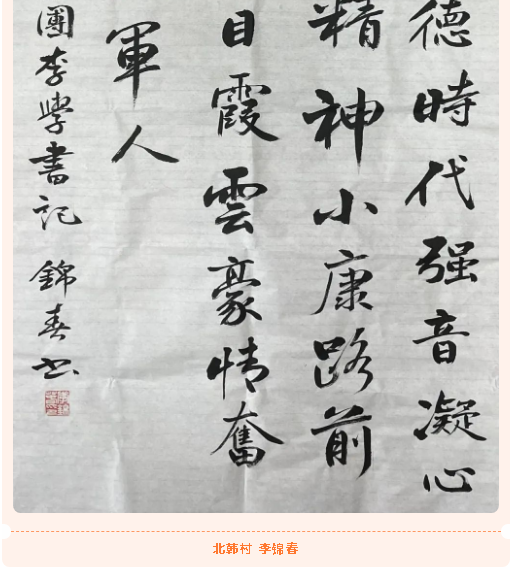 德時代强音凝心
精神小康路前
目霞雲豪情奮
軍人
團李學書記 錦春书
北韩村 李锦春